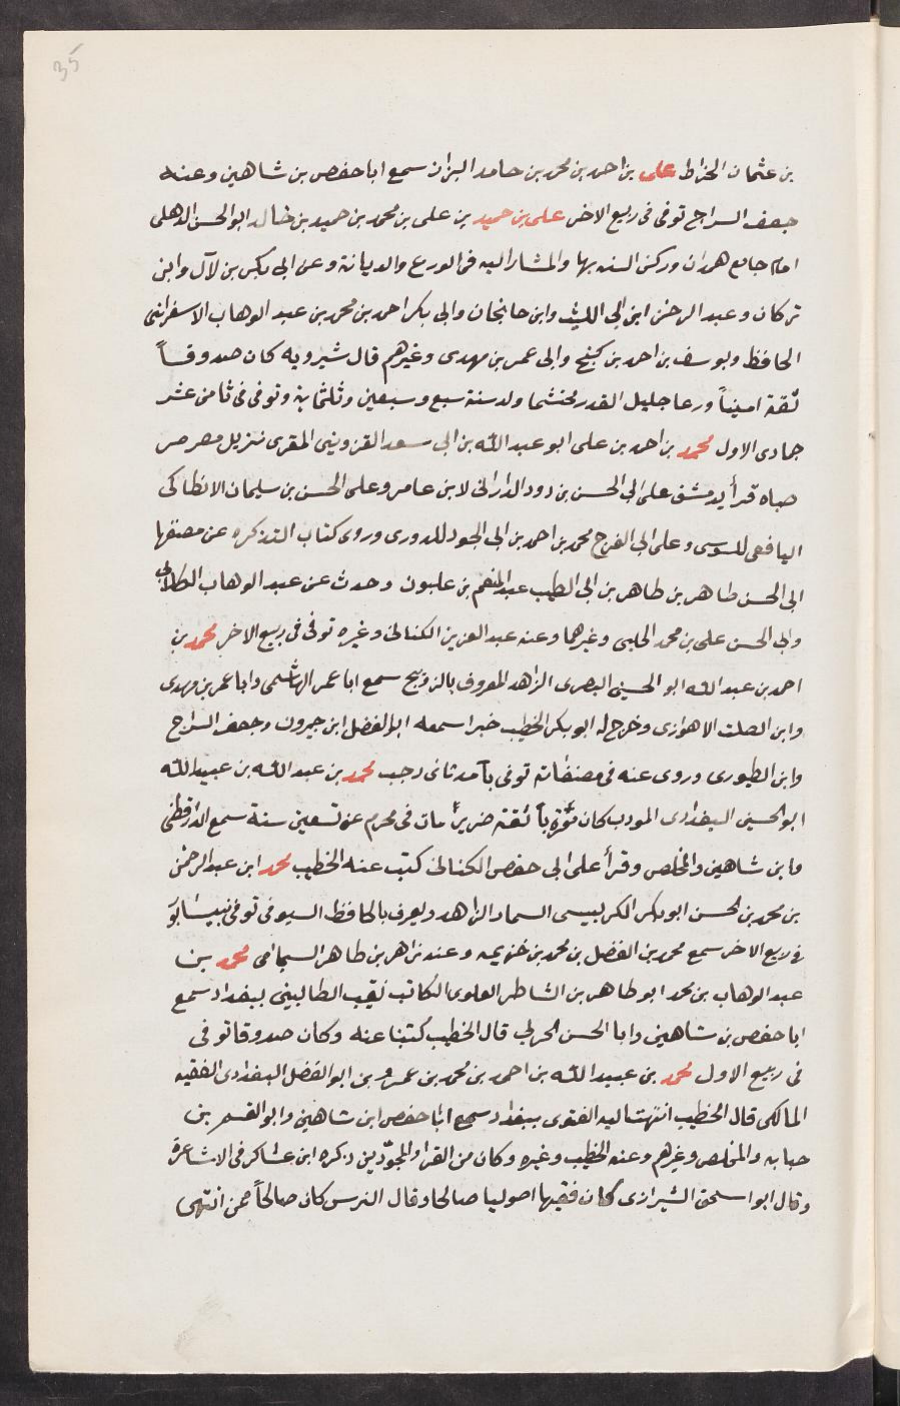 35
بن عثمان الخراط على بن احمد بن محمد بن حامد البزاز سمع ابا حفص بن شاهين وعنه
جعفر السراج توفى فى ربيع الاخر على بن حميد بن على بن محمد بن حميد بن خالد ابو الحسن الذهلى
امام جامع همدان وركن السنه بها والمشار اليه فى الورع والديانة وعن ابى بكر بن لآل وابن
تركان وعبد الرحمن ابن ابى الليث وابن جانجان وابى بكر احمد بن محمد بن عبد الوهاب الاسفراينى
الحافظ ويوسف بن احمد بن كج وابى عمر بن مهدى وغيرهم قال شيرويه كان صدوقاً
ثقة اميناً ورعا جليل القدر محتشما ولد سنة سبع وسبعين وثلثماية وتوفى فى ثامن عشر
جمادى الاول محمد بن احمد بن على ابو عبد الله بن ابى سعد القزوينى المقرى نزيل مصر مر
صباه قرأ بدمشق على ابى الحسن بن دود الدارانى لابن عامر وعلى الحسن بن سليمان الانطاكى
اليافعى للسوسى وعلى ابى الفرج محمد بن احمد بن ابى الجود للدورى وروى كتاب التذكره عن مصنفها
ابى الحسن طاهر بن طاهر بن ابى الطيب عبد المنعم بن غلبون وحدث عن عبد الوهاب الكلابى
وابى الحسن على بن محمد الحلبى وغيرهما وعنه عبد العزيز الكتانى وغيره توفى فى ربيع الاخر محمد بن
احمد بن عبد الله ابو الحسين البصرى الزاهد المعروف بالزبيج سمع ابا عمر الهاشمى وابا عمر بن مهدى
وابن الصلت الاهوازى وخرج له ابو بكر الخطيب خبرا سمعه ابو الفضل ابن خيرون وجعفر السراج
وابن الطيورى وروى عنه فى مصنفاته توفى بآمد ثانى رجب محمد بن عبد الله بن عبيد الله
ابو الحسين البغدادى المودب كان مؤدباً ثقة ضريراً مات فى محرم عن تسعين سنة سمع الدارقطنى
وابن شاهين والمخلص وقرأ على ابى حفص الكتانى كتب عنه الخطيب محمد ابن عبد الرحمن
بن محمد بن الحسن ابو بكر الكرابيسى السماد الزاهد ويعرف بالحافظ السيوفى توفى بنيسابور
فى ربيع الاخر سمع محمد بن الفضل بن محمد بن خزيمه وعنه زاهر بن طاهر الشحامى محمد بن
عبد الوهاب بن محمد ابو طاهر بن الشاطر العلوى الكاتب نقيب الطالبين ببغداد سمع
ابا حفص بن شاهين وابا الحسن الحربى قال الخطيب كتبنا عنه وكان صدوقا توفى
فى ربيع الاول محمد بن عبيد الله بن احمد بن محمد بن عمرو بن ابو الفضل البغدادى الفقيه
المالكى قال الخطيب انتهت اليه الفتوى ببغداد سمع ابا حفص ابن شاهين وابو القسم بن
حبابه والمخلص وغيرهم وعنه الخطيب وغيره وكان من القراء المجوّدين ذكره ابن عساكر فى الاشاعرة
وقال ابو اسحق الشيرازى كان فقيها اصوليا صالحا وقال النرسى كان صالحاً ممن انتهى